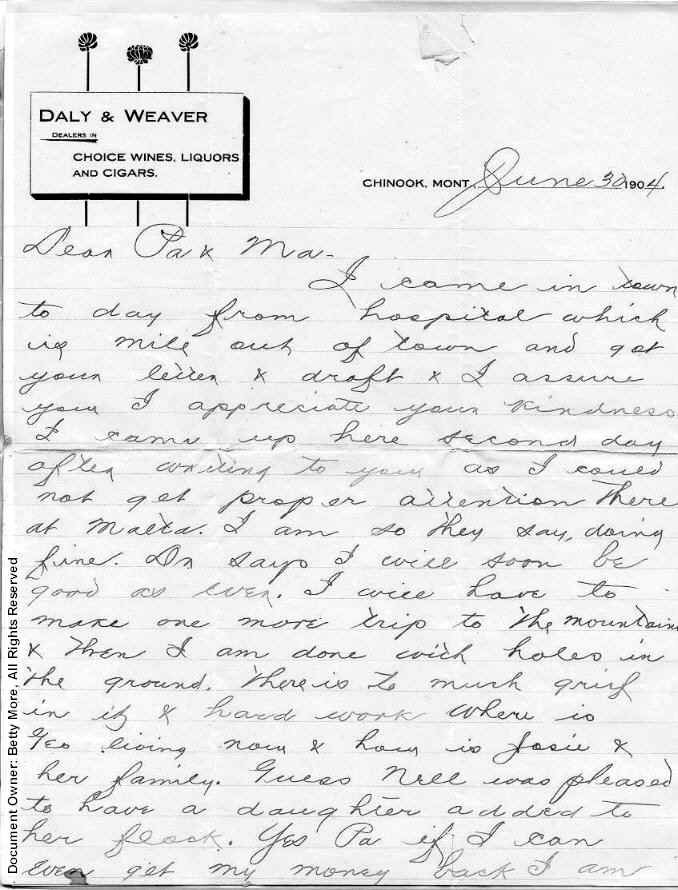 DALY & WEAVER
DEALERS IN
CHOICE WINES, LIQUORS
AND CIGARS.
CHINOOK, MONT. June 30 1904.
Dear Pa & Ma-
I came in town
to day from hospital which
is mile out of town and got
your letter & draft & I assure
you I appreciate your kindness
I came up here second day
after writing to you as I could
not get proper attention there
at Malta. I am so they say, doing
fine. Dr says I will soon be
good as ever. I will have to
make one more trip to the mountains
& then I am done with holes in
the ground. There is to much grief
in it & hard work where is
Geo living now & how is Josie &
her family. Guess Nell was pleased
to have a daughter added to
her flock. Yes Pa if I can
ever get my money back I am
Document Owner: Betty More, All Rights Reserved